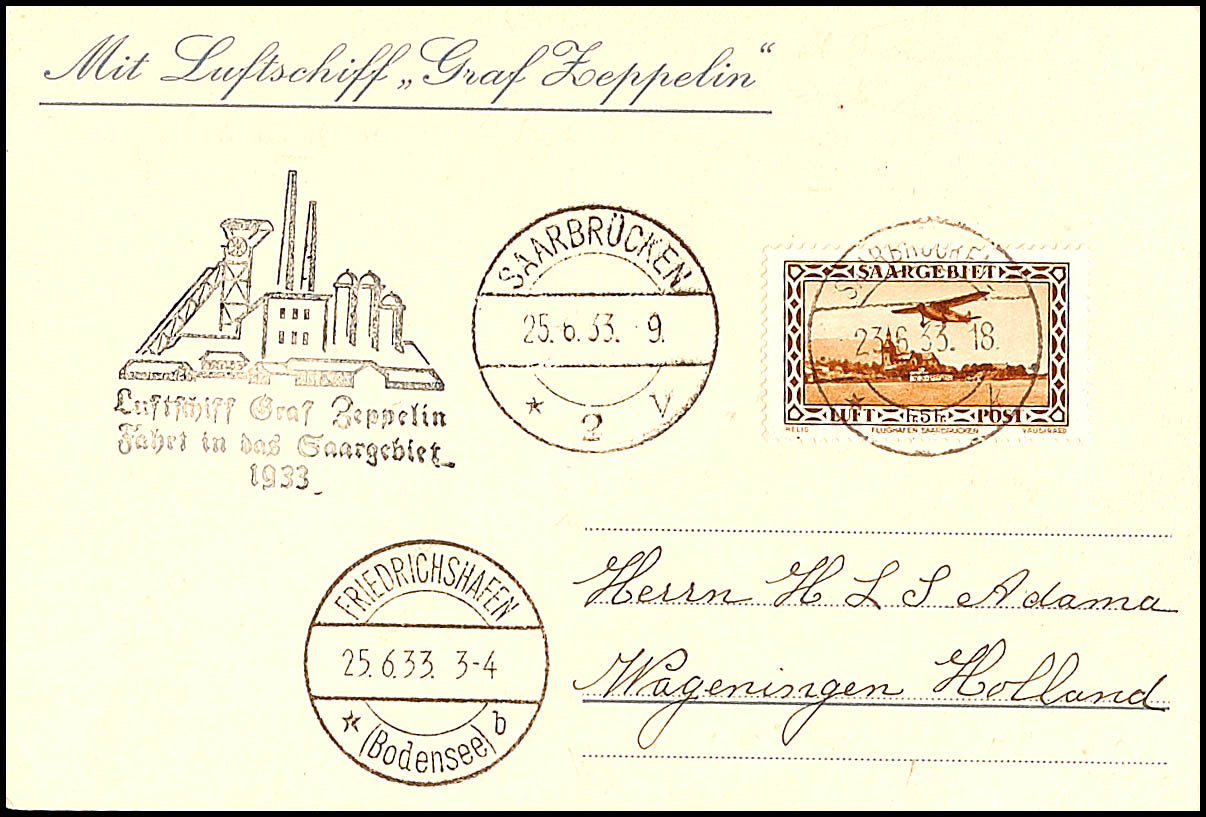 Mit Luftschiff „Graf Zeppelin“
SAARBRÜCKEN
25.6.33. 9.
2 V
SAARBRÜCKEN
23.6.33. 18.
k
SAARGEBIET
LUFT Fr.5Fr. POST
HELIO FLUGHAFEN SAARBRÜCKEN VAUGIRARD
Luftschiff Graf Zeppelin
Fahrt in das Saargebiet
1933
FRIEDRICHSHAFEN
25.6.33. 3-4
(Bodensee) b
Herrn H L S Adama
Wageningen Holland